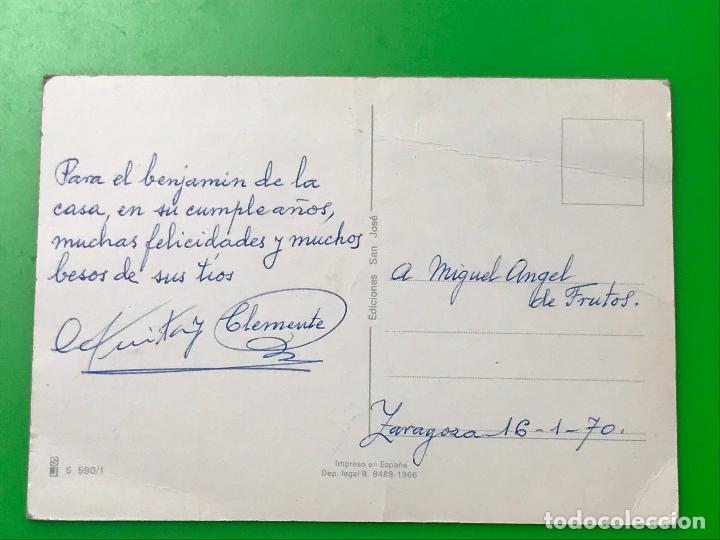 Para el benjamin de la
casa, en su cumpleaños,
muchas felicidades y muchos
besos de sus tíos
y Clemente
Ediciones San José
A Miguel Angel
de Frutos.
Zaragoza 16-1-70.
S. 590/1
Impreso en España
Dep. legal B. 8488-1966
todocoleccion.net